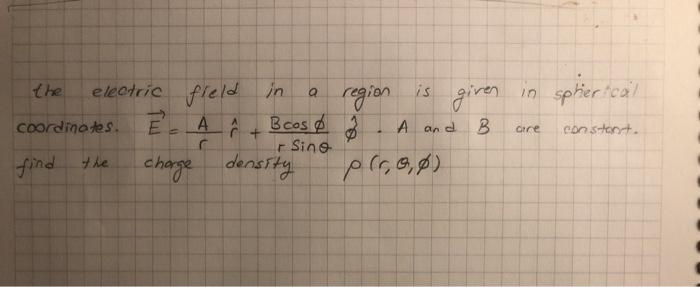 the electric field in a region is given in spherical
coordinates. E⃗ = A/r r̂ + Bcosø/r Sinθ ø̂ . A and B are constant.
find the charge density ρ(r,θ,ø)